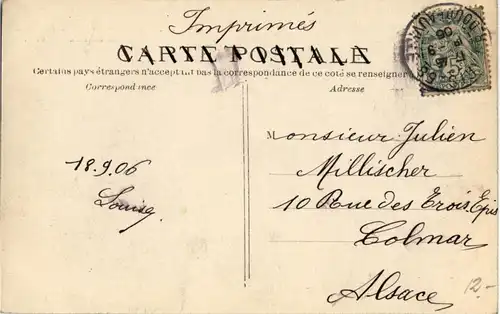 Imprimés
CARTE POSTALE
Certains pays étrangers n'acceptant pas la correspondance de ce coté se renseigner
Correspondance
Adresse
18.9.06
Monsieur Julien
Millischer
10 Rue des Trois Epis
Colmar
Alsace
12.-